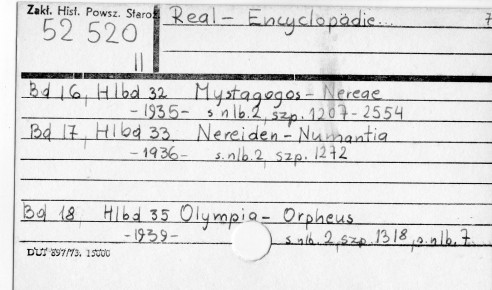 Zakł. Hist. Powsz. Staroż.
Real - Encyclopädie... 7
52 520
II
Bd 16, Hlbd 32 Mystagogos - Nereae
-1935- s. nlb. 2, szp. 1207-2554
Bd 17, Hlbd 33 Nereiden - Numantia
-1936- s. nlb. 2, szp. 1272
Bd 18 Hlbd 35 Olympia - Orpheus
-1939- s. nlb. 2, szp. 1318, s. nlb. 7
DUJ 897/73. 15000